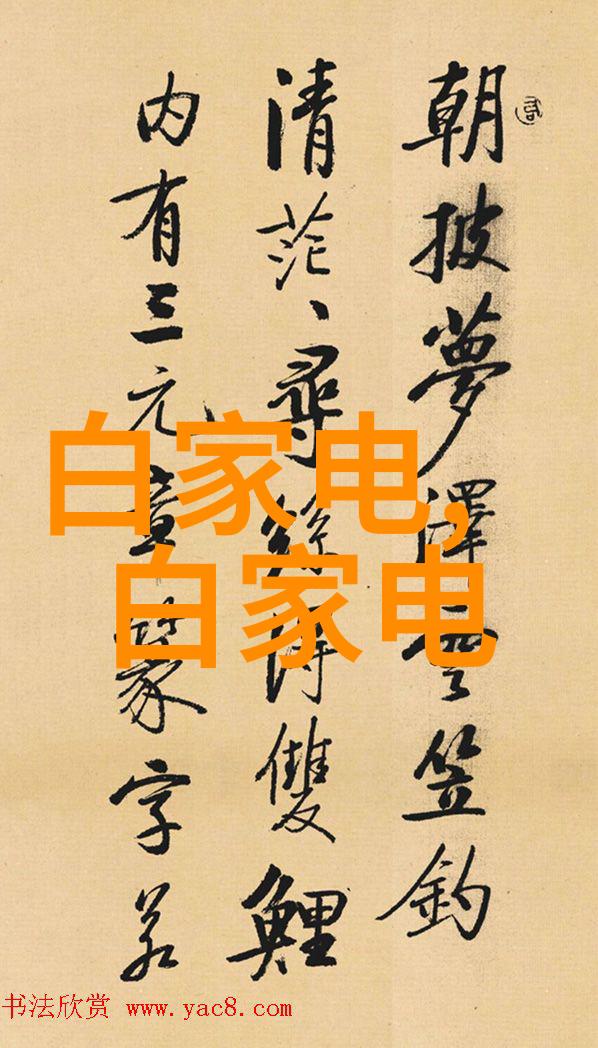 朝披夢澤雲笠釣
清茫〻尋絲得雙鯉
内有三元章篆字若
白家电,
白家电
书法欣赏 www.yac8.com